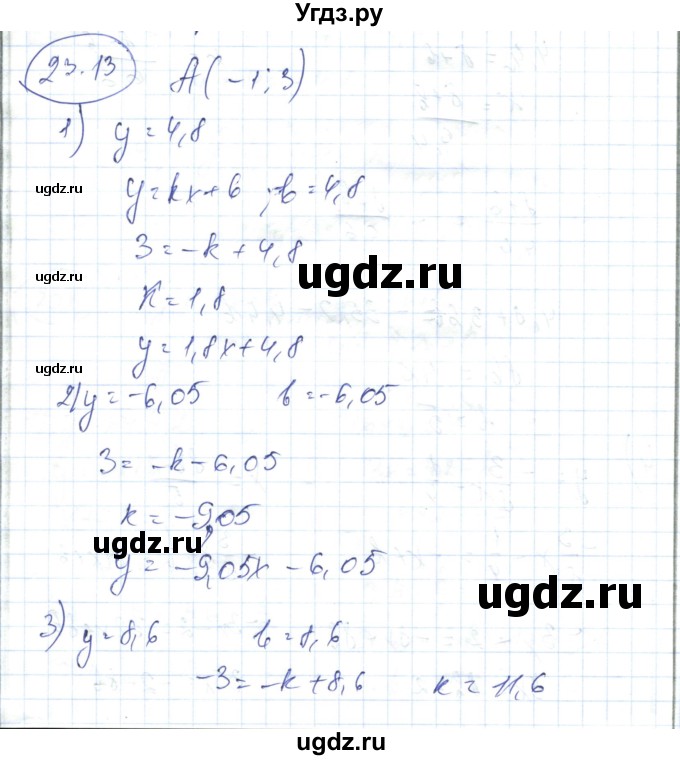 Угдз.ру
23.13
A(-1; 3)
1) y = 4,8
y = kx + b ; b = 4,8
3 = -k + 4,8
k = 1,8
y = 1,8x + 4,8
2) y = -6,05 b = -6,05
3 = -k - 6,05
k = -9,05
y = -9,05x - 6,05
3) y = 8,6 b = 8,6
-3 = -k + 8,6 k = 11,6
ugdz.ru
ugdz.ru
ugdz.ru
ugdz.ru
ugdz.ru
ugdz.ru
ugdz.ru